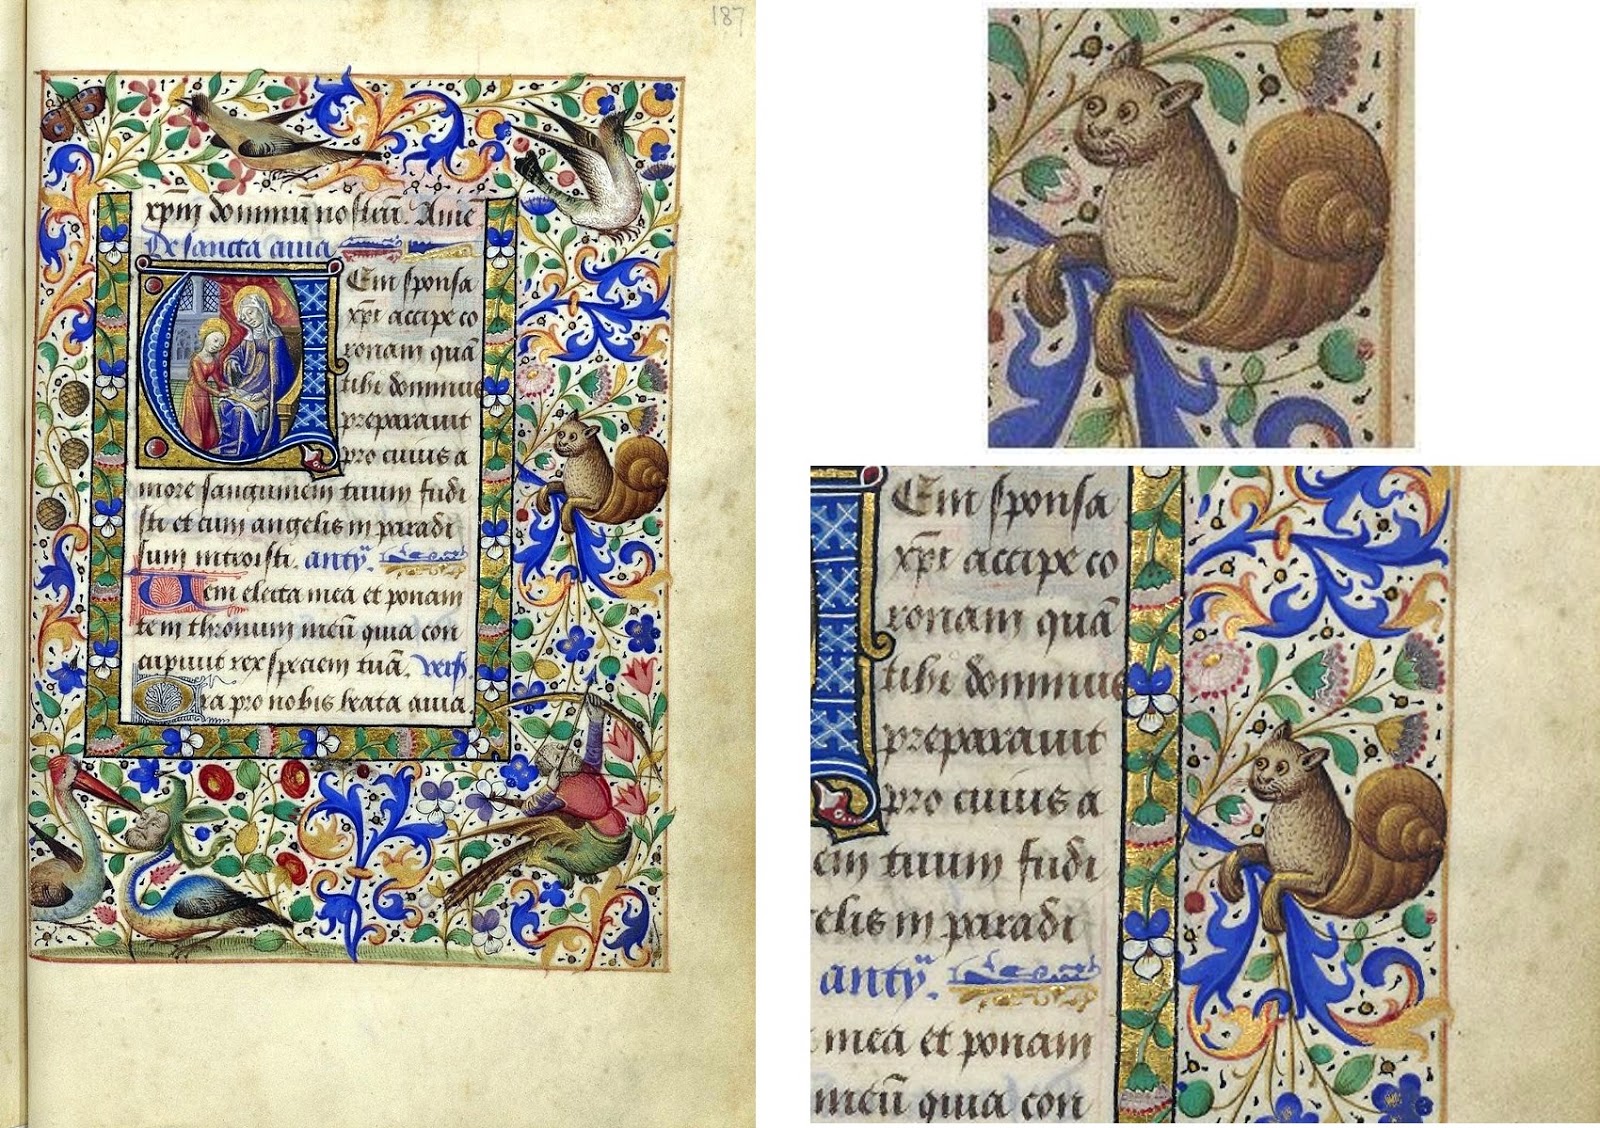 187
xp̄m dominū nostrū. Amē
De sancta anna
VEni sponsa
xp̄i accipe co
ronam quā
tibi dominus
preparauit
pro cuius a
more sanguinem tuum fudi
sti et cum angelis in paradi
sum introisti. antyᵃ.
Veni electa mea et ponam
te in thronum meū quia con
cupiuit rex speciem tuā. vers
Ora pro nobis beata anna.
Eni sponsa
xp̄i accipe co
ronam quā
tibi dominus
preparauit
pro cuius a
em tuum fudi
elis in paradi
antyᵃ.
mea et ponam
meū quia con